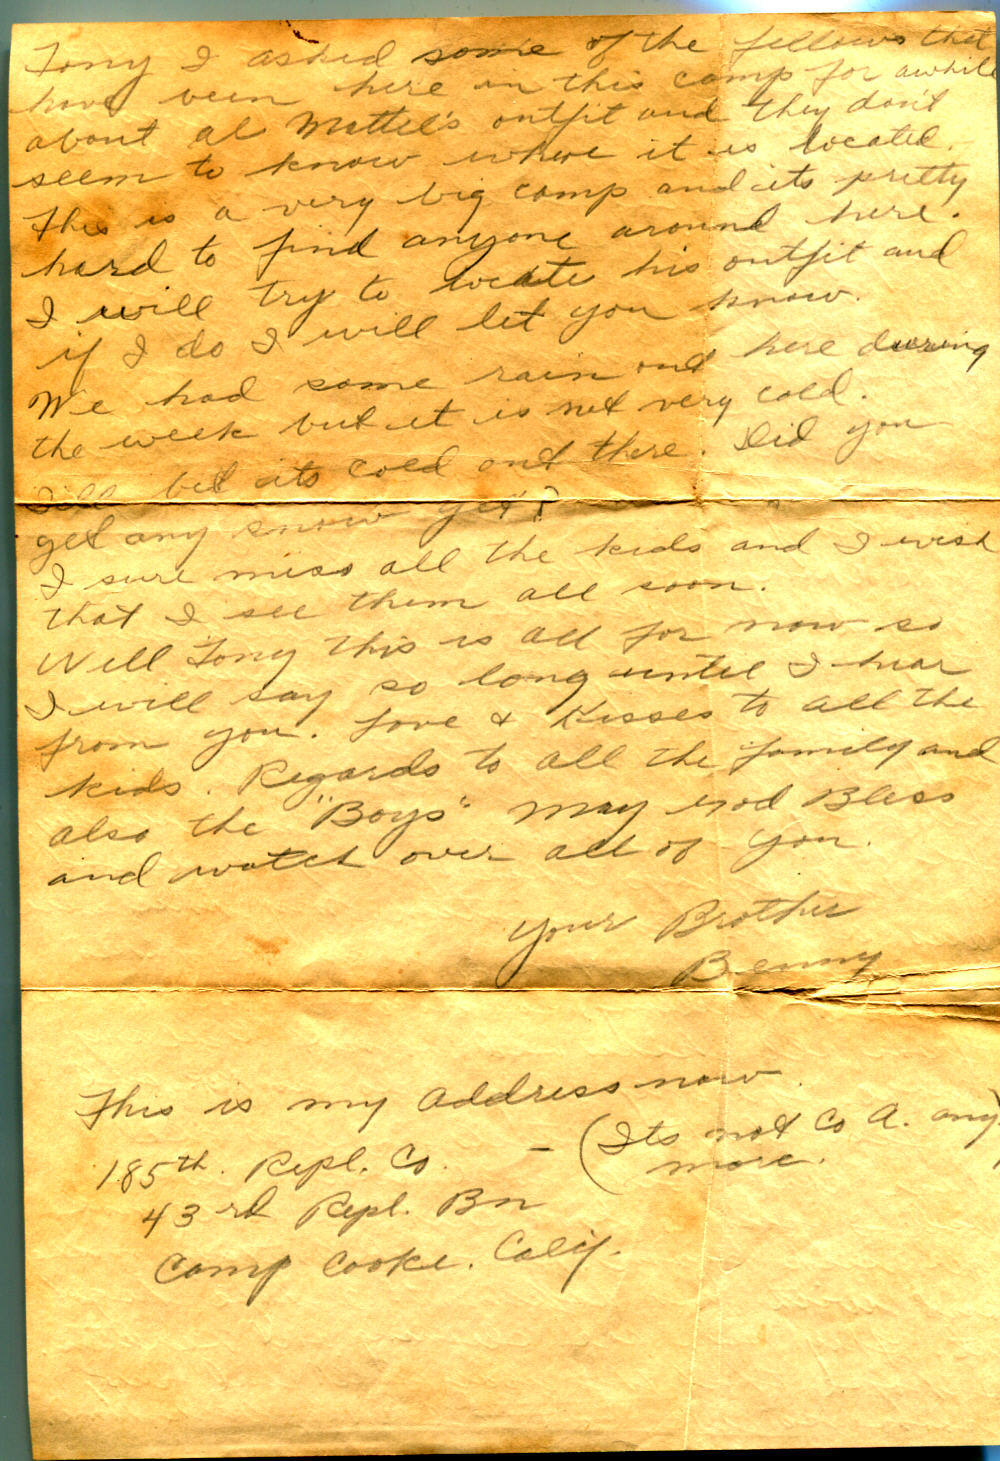 Tony I asked some of the fellows that
have been here in this camp for awhile
about Al Mattel's outfit and they don't
seem to know where it is located.
This is a very big camp and its pretty
hard to find anyone around here.
I will try to locate his outfit and
if I do I will let you know.
We had some rain out here during
the week but it is not very cold.
I'll bet its cold out there. Did you
get any snow yet?
I sure miss all the kids and I wish
that I see them all soon.
Well Tony this is all for now so
I will say so long until I hear
from you. Love & Kisses to all the
kids. Regards to all the family and
also the "Boys" May God Bless
and watch over all of you.
Your Brother
Benny
This is my address now.
185th. Repl. Co. - (Its not Co A. any
more.)
43rd Repl. Bn
Camp Cooke. Calif.